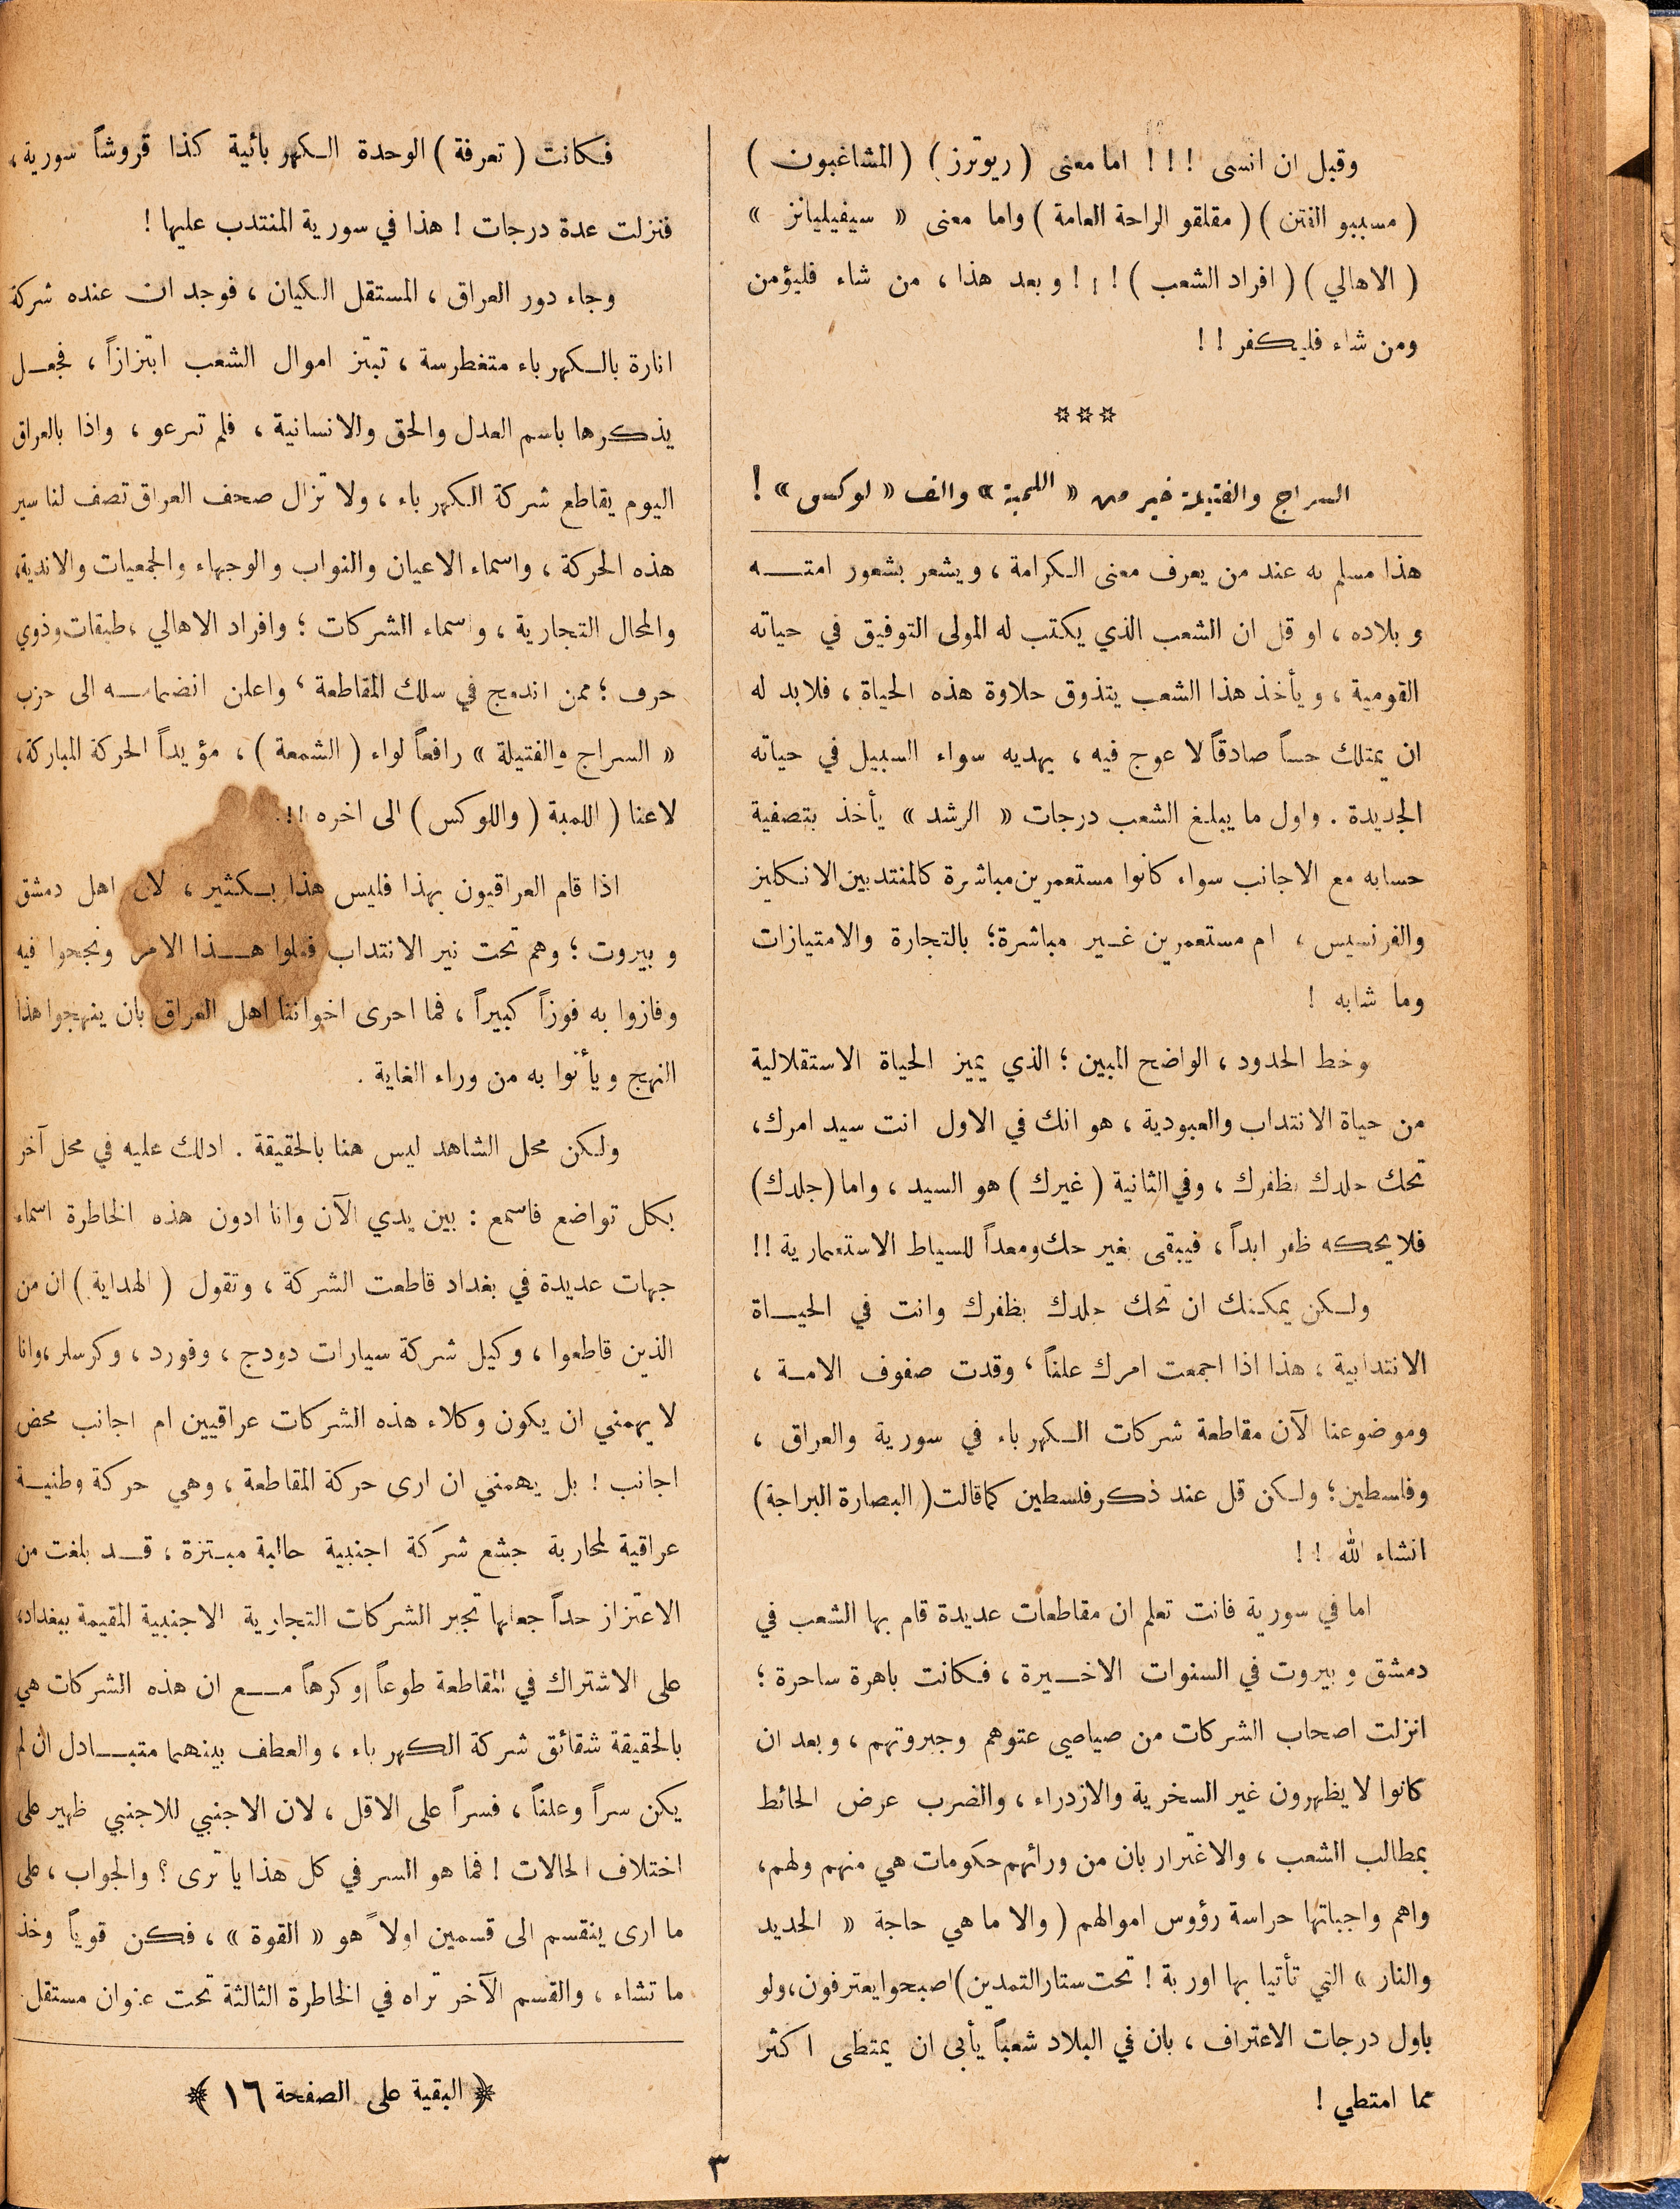 وقبل ان انسى ! ! ! اما معنى ( ريوترز ) ( المشاغبون )
( مسببو الفتن ) ( مقلقو الراحة العامة ) واما معنى « سيفيليانز »
( الاهالي ) ( افراد الشعب ) ! ! ! وبعد هذا ، من شاء فليؤمن
ومن شاء فليكفر ! !
***
السراج والفتيلة خير من « اللمبة » والف « لوكس » !
هذا مسلم به عند من يعرف معنى الكرامة ، ويشعر بشعور امتـــه
وبلاده ، او قل ان الشعب الذي يكتب له المولى التوفيق في حياته
القومية ، ويأخذ هذا الشعب يتذوق حلاوة هذه الحياة ، فلابد له
ان يمتلك حساً صادقاً لا عوج فيه ، يهديه سواء السبيل في حياته
الجديدة . واول ما يبلغ الشعب درجات « الرشد » يأخذ بتصفية
حسابه مع الاجانب سواء كانوا مستعمرين مباشرة كالمنتدبين الانكليز
والفرنسيس ، ام مستعمرين غـير مباشرة؛ بالتجارة والامتيازات
وما شابه !
وخط الحدود ، الواضح المبين ؛ الذي يميز الحياة الاستقلالية
من حياة الانتداب والعبودية ، هو انك في الاول انت سيد امرك،
تحك جلدك بظفرك ، وفي الثانية ( غيرك ) هو السيد ، واما (جلدك)
فلا يحكه ظفر ابداً ، فيبقى بغير حك ومعداً للسياط الاستعمارية !!
ولـكن يمكنك ان تحك جلدك بظفرك وانت في الحيـاة
الانتدابية ، هذا اذا اجمعت امرك علناً ، وقدت صفوف الامـة ،
وموضوعنا الآن مقاطعة شركات الـكهرباء في سورية والعراق ،
وفلسطين ؛ ولـكن قل عند ذكر فلسطين كما قالت ( البصارة البراجة )
انشاء الله ! !
اما في سورية فانت تعلم ان مقاطعات عديدة قام بها الشعب في
دمشق وبيروت في السنوات الاخـيرة ، فكانت باهرة ساحرة ؛
انزلت اصحاب الشركات من صياصي عتوهم وجبروتهم ، وبعد ان
كانوا لا يظهرون غير السخرية والازدراء ، والضرب عرض الحائط
بمطالب الشعب ، والاغترار بان من ورائهم حكومات هي منهم ولهم،
واهم واجباتها حراسة رؤوس اموالهم ( والا ما هي حاجة « الحديد
والنار » التي تأتيا بها اوربة ! تحت ستار التمدين ) اصبحوا يعترفون، ولو
باول درجات الاعتراف ، بان في البلاد شعباً يأبى ان يمتطى اكثر
مما امتطي !
فكانت ( تعرفة ) الوحدة الـكهربائية كذا قروشاً سورية،
فنزلت عدة درجات ! هذا في سورية المنتدب عليها !
وجاء دور العراق ، المستقل الكيان ، فوجد ان عنده شركة
انارة بالـكهرباء متغطرسة ، تبتز اموال الشعب ابتزازاً ، فجعـل
يذكرها باسم العدل والحق والانسانية ، فلم ترعو ، واذا بالعراق
اليوم يقاطع شركة الكهرباء ، ولا تزال صحف العراق تصف لنا سير
هذه الحركة ، واسماء الاعيان والنواب والوجهاء والجمعيات والاندية،
والمحال التجارية ، واسماء الشركات ؛ وافراد الاهالي ، طبقات وذوي
حرف ؛ ممن اندمج في سلك المقاطعة ، واعلن انضمامـه الى حزب
« السراج والفتيلة » رافعاً لواء ( الشمعة ) ، مؤيداً الحركة المباركة،
لاعنا ( اللمبة ( واللوكس ) الى اخره !!.
اذا قام العراقيون بهذا فليس هذا بـكثير ، لان اهل دمشق
وبيروت ؛ وهم تحت نير الانتداب فعلوا هــذا الامر ونجحوا فيه
وفازوا به فوزاً كبيراً ، فما احرى اخواننا اهل العراق بان ينهجوا هذا
النهج ويأتوا به من وراء الغاية .
ولكن محل الشاهد ليس هنا بالحقيقة . ادلك عليه في محل آخر
بكل تواضع فاسمع : بين يدي الآن وانا ادون هذه الخاطرة اسماء
جهات عديدة في بغداد قاطعت الشركة ، وتقول ( الهداية ) ان من
الذين قاطعوا ، وكيل شركة سيارات دودج ، وفورد ، وكرسلر ، وانا
لا يهمني ان يكون وكلاء هذه الشركات عراقيين ام اجانب محض
اجانب ! بل يهمني ان ارى حركة المقاطعة ، وهي حركة وطنيـة
عراقية لمحاربة جشع شركة اجنبية حالبة مبتزة ، قـد بلغت من
الاعتزاز حداً جعلها تجبر الشركات التجارية الاجنبية المقيمة ببغداد،
على الاشتراك في المقاطعة طوعاً اوكرهاً مـع ان هذه الشركات هي
بالحقيقة شقائق شركة الكهرباء ، والعطف بينهما متبـادل ان لم
يكن سراً وعلناً ، فسراً على الاقل ، لان الاجنبي للاجنبي ظهير على
اختلاف الحالات ! فما هو السر في كل هذا يا ترى ؟ والجواب ، على
ما ارى ينقسم الى قسمين اولاً هو « القوة » ، فكن قوياً وخذ
ما تشاء ، والقسم الآخر تراه في الخاطرة الثالثة تحت عنوان مستقل.
﴿ البقية على الصفحة ١٦ ﴾
٣